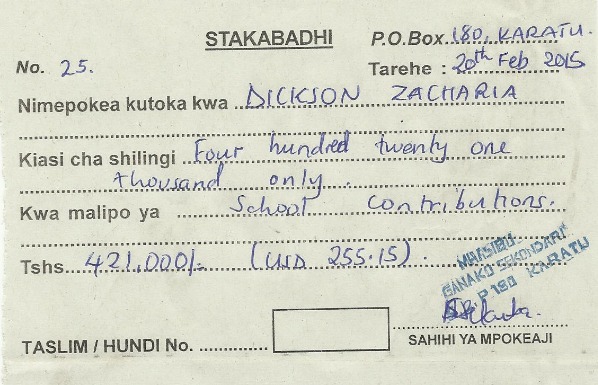 STAKABADHI P.O.Box 180, KARATU.
No. 25. Tarehe : 20th Feb 2015
Nimepokea kutoka kwa DICKSON ZACHARIA
Kiasi cha shilingi Four hundred twenty one
thousand only.
Kwa malipo ya School Contributions.
Tshs 421,000/- (USD 255.15).
MHASIBU
GANAKO SEKONDARI
P 180 KARATU
TASLIM / HUNDI No. ............... SAHIHI YA MPOKEAJI